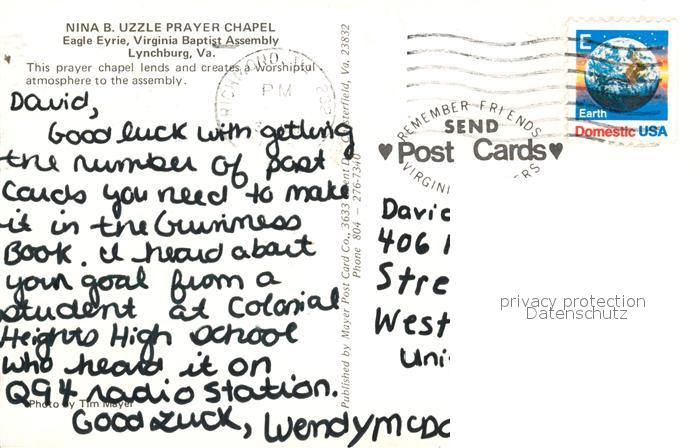 NINA B. UZZLE PRAYER CHAPEL
Eagle Eyrie, Virginia Baptist Assembly
Lynchburg, Va.
This prayer chapel lends and creates a worshipful
atmosphere to the assembly.
David,
Good luck with getting
the number of post
cards you need to make
it in the Guinness
Book. I heard about
your goal from a
student at Colonial
Heights High School
who heard it on
Q94 radio station.
Good Luck, Wendy McDo
Photo by Tim Mayer
Published by Mayer Post Card Co., 3633 Chesterfield, Va. 23832
Phone 804 - 276-7340
RICHMOND, VA
PM
232
REMEMBER FRIENDS
SEND
Post Cards
VIRGINI ERS
E
Earth
Domestic USA
David
406
Stre
West
Uni
privacy protection
Datenschutz